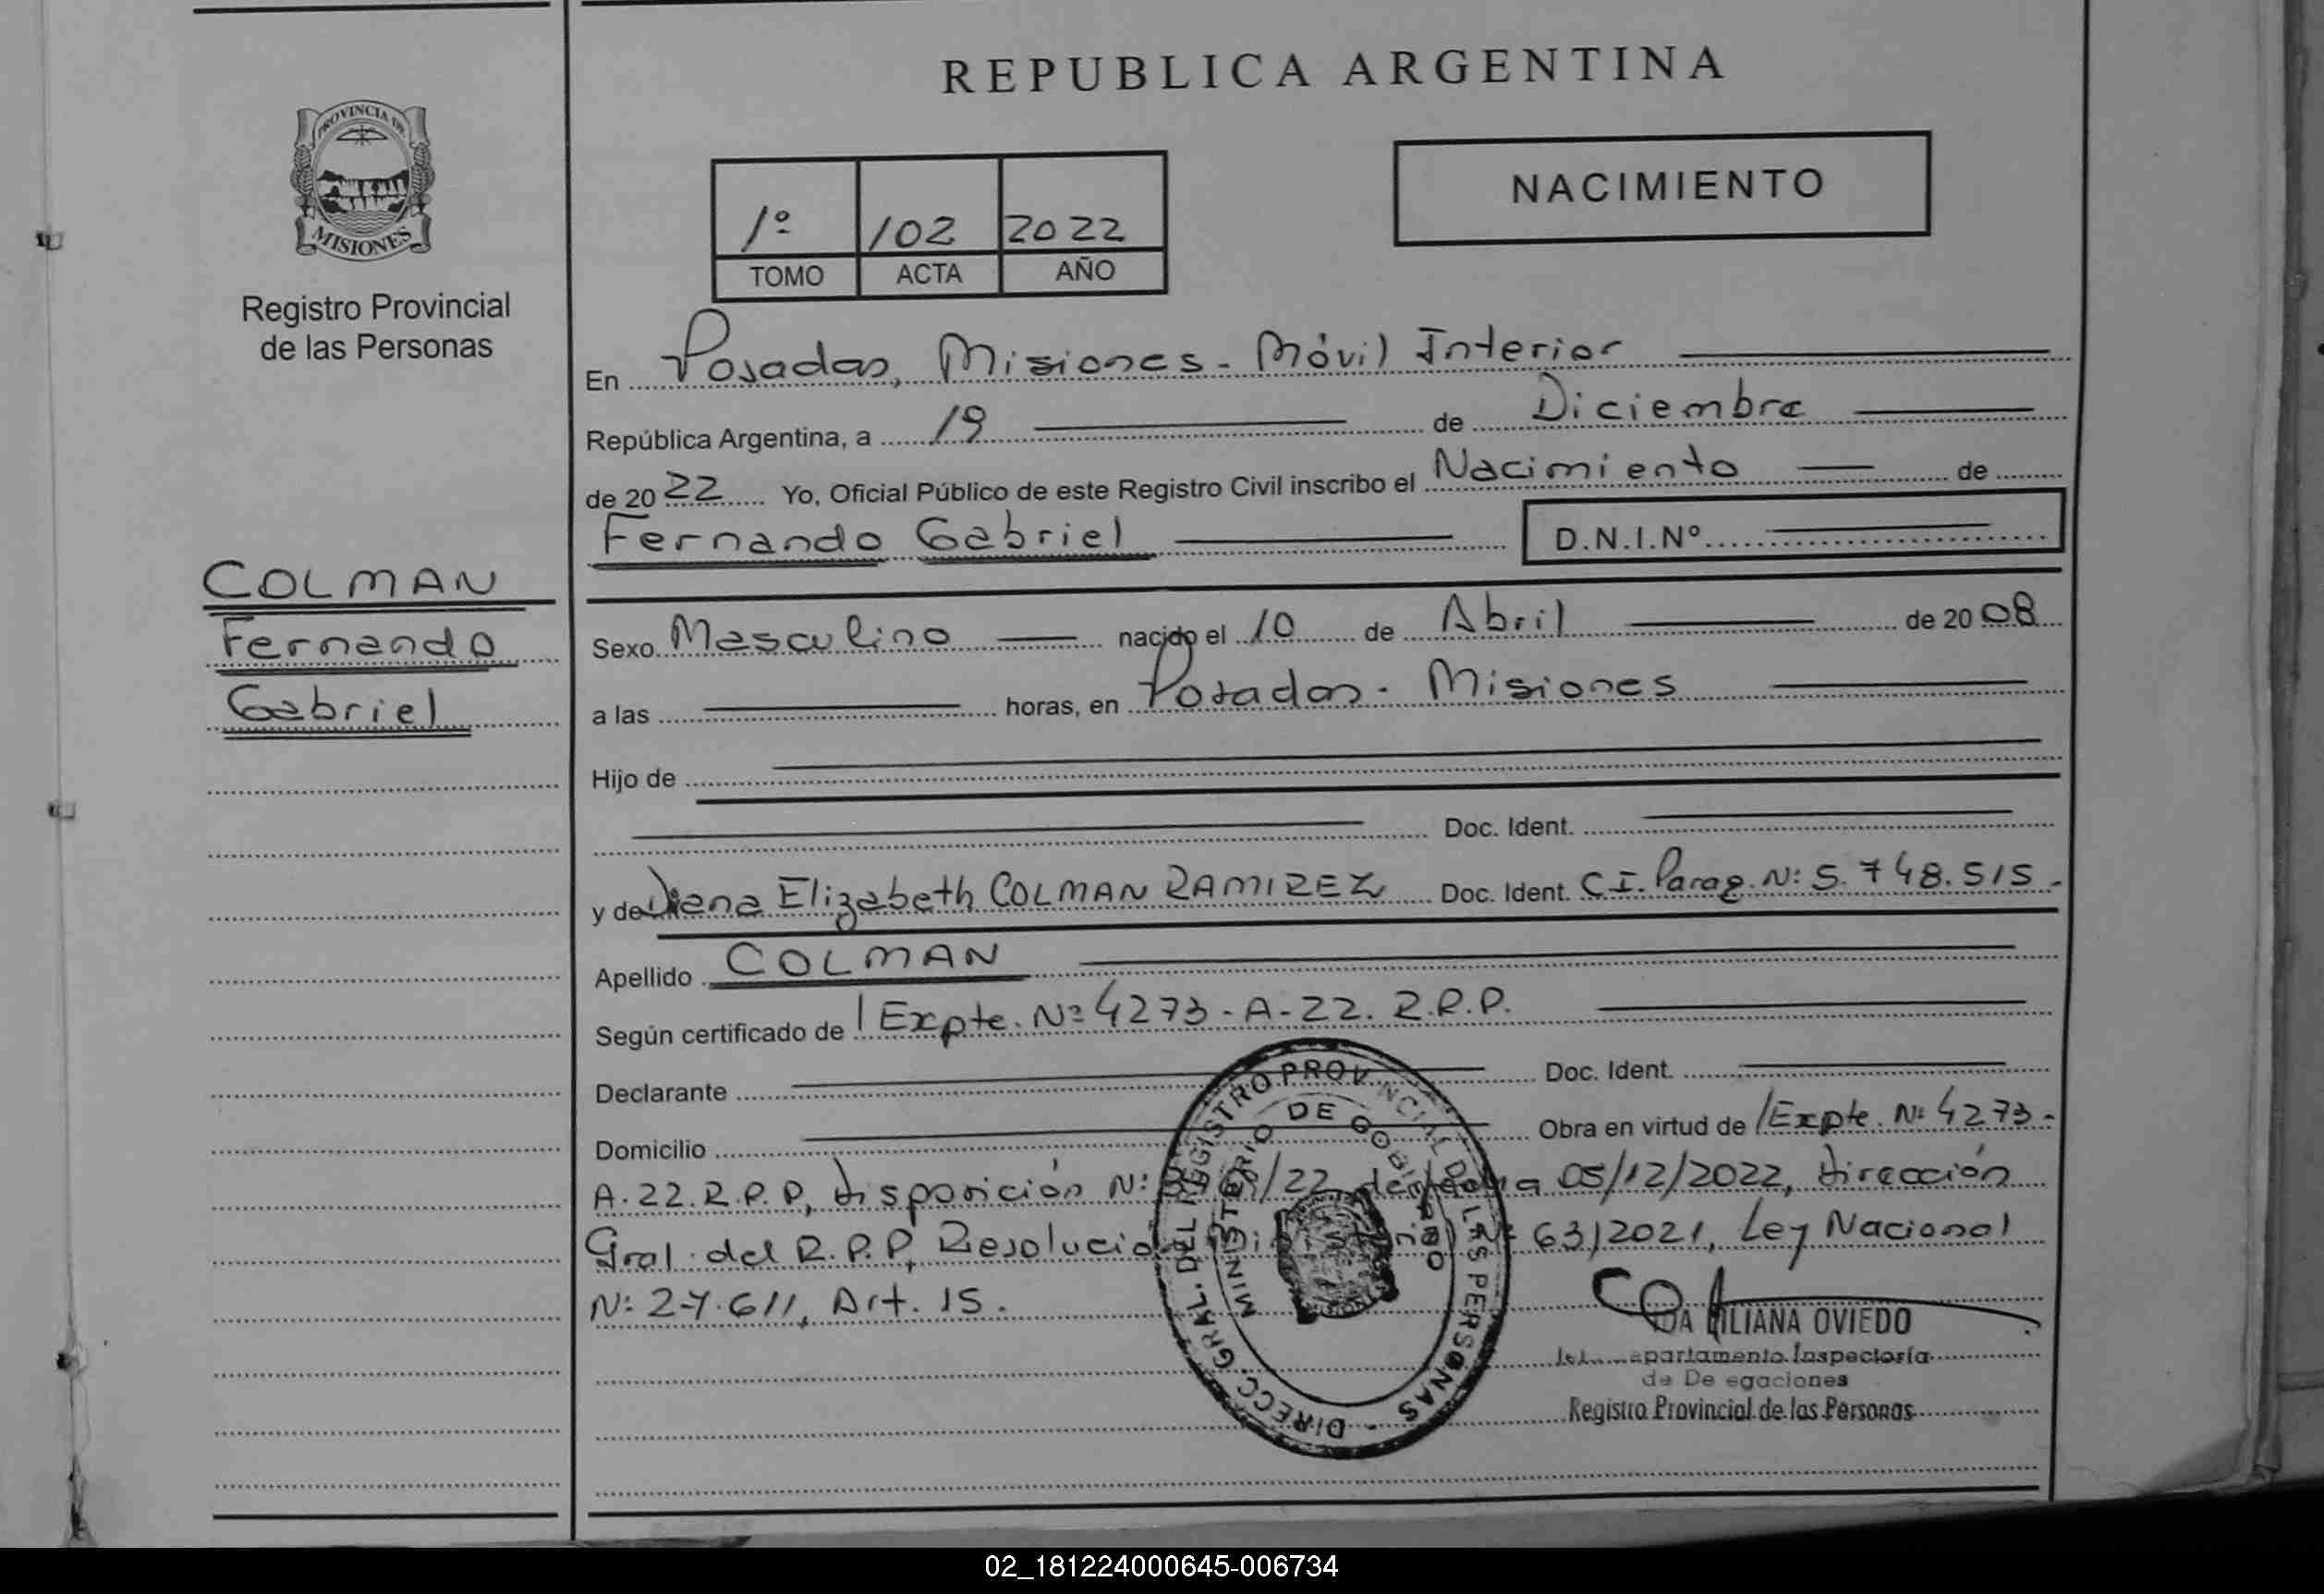 REPUBLICA ARGENTINA
PROVINCIA DE
MISIONES
Registro Provincial
de las Personas
NACIMIENTO
1º 102 2022
TOMO ACTA AÑO
En Posadas, Misiones - Móvil Interior
República Argentina, a 19 de Diciembre
de 20 22 Yo, Oficial Público de este Registro Civil inscribo el Nacimiento de
Fernando Gabriel D.N.I.Nº
COLMAN
Fernando
Gabriel
Sexo Masculino nacido el 10 de Abril de 20 08
a las horas, en Posadas - Misiones
Hijo de
Doc. Ident.
y de Diana Elizabeth COLMAN RAMIREZ Doc. Ident. C.I. Parag. Nº 5.748.515.-
Apellido COLMAN
Según certificado de / Expte. Nº 4273-A-22. R.P.P.
Declarante Doc. Ident.
Domicilio Obra en virtud de / Expte. Nº 4273-
A-22.R.P.P, disposición Nº /22 de fecha 05/12/2022, Dirección
Gral. del R.P.P, Resolución Ministerial Nº 63/2021, Ley Nacional
Nº 27.611, Art. 15.
DIRECC. GRAL. DEL REGISTRO PROVINCIAL DE LAS PERSONAS -
MINISTERIO DE GOBIERNO
LILIANA OVIEDO
Departamento Inspectoría
de Delegaciones
Registro Provincial de las Personas
02_181224000645-006734